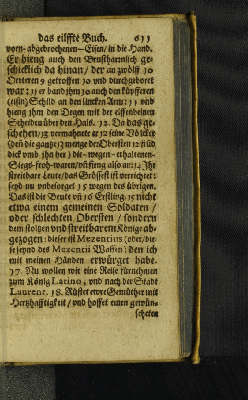 das eilffte Buch. 611
vorn-abgebrochenen-Eisen/ in die Hand.
Er hieng auch den Brustharnisch ge-
schicklich da hinan/ der an zwölff 10
Orteren 9 getroffen 10 und durchboret
war: 11 er band ihm 10 auch den küpfferen
Schild an den lincken Arm: 11 und
hieng ihm den Degen mit der elffenbeinen
Scheide über den Hals. 12. Da das ge-
schehen/ 13 vermahnete er 12 seine Völcker
(den die gantze) 13 menge der Obersten 12
dick umb ihn her) die-wegen-erhaltenen-
Siegs-froh-waren/ 14. Ihr
streitbare Leute/ das Grössest ist verrichtet:
seyd nu unbesorget 15 wegen des übrigen.
Das ist die Beute 16 Erstling 15 nicht
etwa einem gemeinen Soldaten/
oder schlechten Obersten/ sondern
dem stoltzen und streitbarem Könige ab-
gezogen: dieser ist Mezentius (oder/
Mezentii Waffen) den ich
mit meinen Händen erwürget habe.
17. Nu wollen wir eine Reise fürnehmen
zum König Latino, und nach der Stadt
Laurent. 18. Rüstet ewre Gemüther mit
Hertzhafftigkeit/ und hoffet einen gewün-
scheten